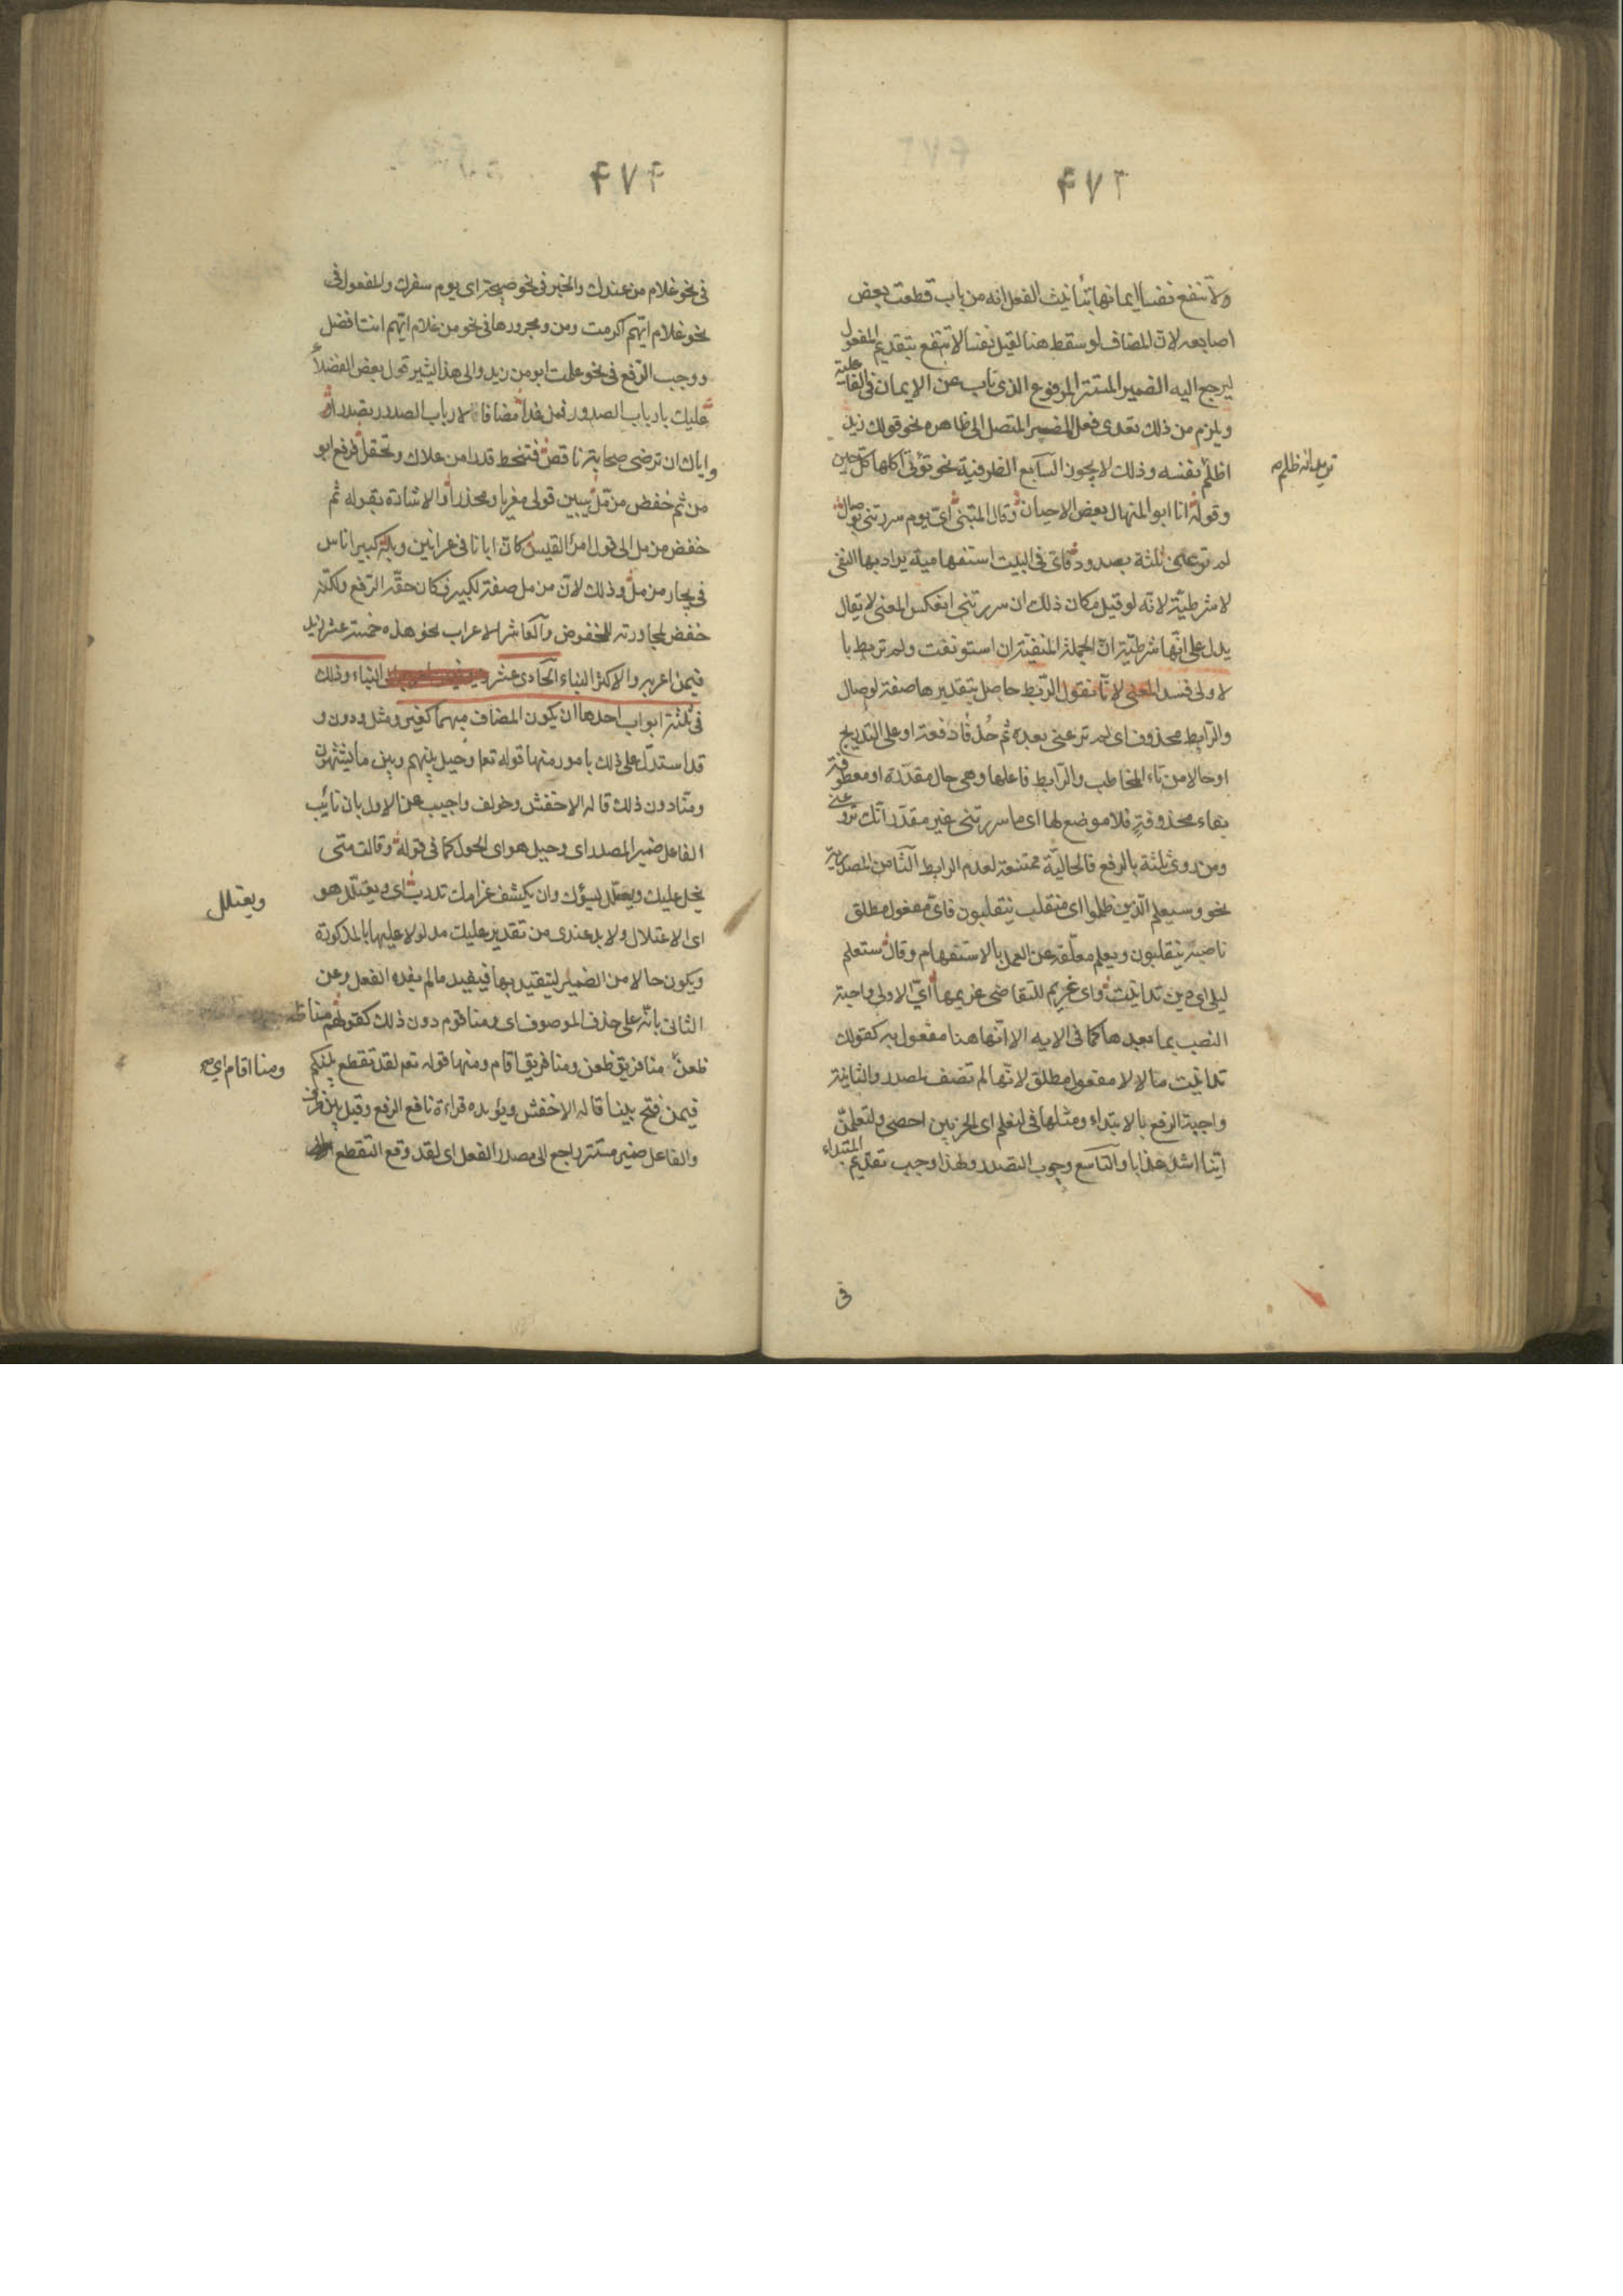 ۴۷۳
ولا تنفع نفسا ايمانها بتأنيث الفعل انه من باب قطعت بعض
اصابعه لان المضاف لو سقط هنا لقيل نفسا لا تنفع بتقديم المفعول
ليرجع اليه الضمير المستتر المرفوع الذى ناب عن الايمان فى الفاعلية
ويلزم من ذلك تعدى فعل المضمر المتصل الى ظاهره نحو قولك زيد
اظلم نفسه وذلك لا يجوز السابع الظرفية نحو تؤتى اكلها كل حين
تريد انه ظلم
وقوله انا ابو المنهال بعض الاحيان وقال المتنبى اىّ يوم سررتنى بوصال
لم ترعنى ثلثة بصدود فاىّ فى البيت استفهامية يراد بها النفى
لا شرطيّة لانّه لو قيل مكان ذلك ان سررتنى انعكس المعنى لا يقال
يدل على انّها شرطيّة انّ الجملة المنفيّة ان استونفت ولم تربط با
لاولى فسد المعنى لانّا نقول الرّبط حاصل بتقديرها صفة لوصال
والرّابط محذوف اى لم ترعنى بعده ثم حُذفا دفعة او على التدريج
او حالا من تاء المخاطب والرّابط فاعلها وهى حال مقدّرة او معطوفة
بفاء محذوفةٍ فلا موضع لها اى ما سررتنى غير مقدّر انّك تروعنى
ومن روى ثلثة بالرفع فالحاليّة ممتنعة لعدم الرابط الثّامن المصدرية
نحو وسيعلم الّذين ظلموا اى منقلب ينقلبون فاىّ مفعول مطلق
ناصبه ينقلبون ويعلم معلّقة عن العمل بالاستفهام وقال ستعلم
ليلى اى دين تداينت واى غريم للتقاضى غريمها اىّ الاولى واجبة
النصب بما بعدها كما فى الايه الا انّها هنا مفعول به كقولك
تداينت مالا لا مفعول مطلق لانّها لم تضف لمصدر والثانية
واجبة الرفع بالابتداء ومثلها فى لنعلم اى الحزبين احصى ولتعلمنّ
اينا اشد عذابا والتاسع وجوب التصدر ولهذا وجب تقديم المبتداء
فى
۴۷۴
فى نحو غلام من عندك والخبر فى نحو صبيحة اى يوم سفرك والمفعول فى
نحو غلام ايّهم اكرمت ومن ومجرورها فى نحو من غلام ايّهم انت افضل
ووجب الرّفع فى نحو علمت ابو من زيد والى هذا يشير قول بعض الفضلاء
عليك بارباب الصدور فمن غدا مضافا لارباب الصدور تصدرا
واياك ان ترضى صحابة ناقص فتنحط قدرا من علاك وتحقرا فرفع ابو
من ثم خفض مزمّل يبين قولى مغريا ومحذرا والاشارة بقوله ثم
خفض مزمل الى قول امرئ القيس كانّ ابانا فى عرانين وبله كبير اناس
فى بجاد مزمل وذلك لانّ مزمل صفة لكبير فكان حقّه الرّفع ولكنّه
خفض لمجاورته للمخفوض والعاشر الاعراب نحو هذه خمسة عشر زيد
فيمن اعربه والاكثر البناء الحادى عشر البناء وذلك
فى ثلثة ابواب احدها ان يكون المضاف مبهما كغير ومثل ودون و
قد استدلّ على ذلك بامور منها قوله تعا وحيل بينهم وبين ما يشتهون
ومنّا دون ذلك قاله الاخفش وخولف واجيب عن الاول بان نائب
الفاعل ضمير المصدر اى وحيل هو اى الحول كما فى قوله وقالت متى
يبخل عليك ويعتلل يسؤك وان يكشف غرامك تدرب اى ويعتلل هو
ويعتلل
اى الاعتلال ولا بد عندى من تقدير عليك مدلولا عليها بالمذكورة
ويكون حالا من الضمير ليتقيد بها فيفيد ما لم يفده الفعل وعن
الثانى بانّه على حذف الموصوف اى ومنا قوم دون ذلك كقولهم منا ظ
ظعن منا فريق ظعن ومنا فريق اقام ومنها قوله تعم لقد تقطع بينكم
ومنا اقام اى
فيمن فتح بينا قاله الاخفش ويؤيده قراءة نافع الرفع وقيل بين ظرف
والفاعل ضمير مستتر راجع الى مصدر الفعل اى لقد وقع التقطع